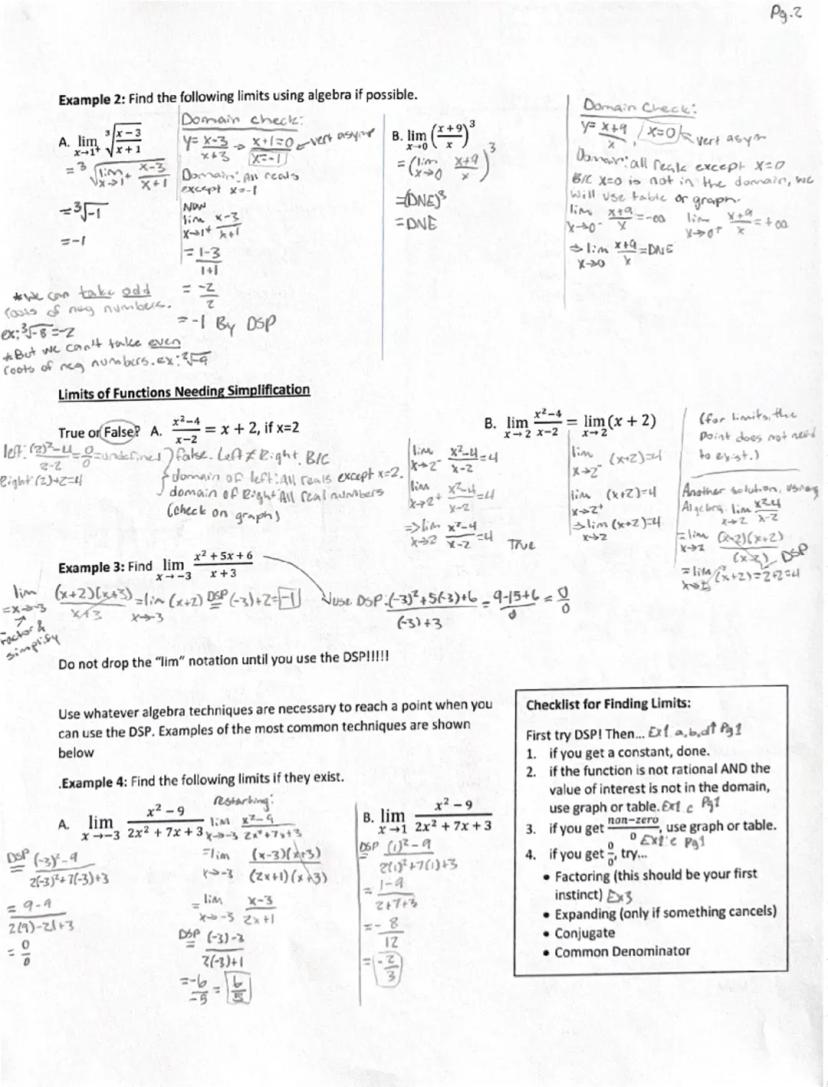 Pg.2
Example 2: Find the following limits using algebra if possible.
A. lim x→1⁺ ∛((x−3)/(x+1))
= ∛(lim x→1⁺ (x-3)/(x+1))
= ∛-1
= -1
*We can take odd
roots of neg numbers.
ex: ∛-8 = -2
*But we can't take even
roots of neg numbers. ex: ²√-9
Domain check:
y = (x-3)/(x+3) → x+1=0 ← vert asym
x=-1
Domain: All reals
except x=-1
NOW
lim x→1⁺ (x-3)/(x+1)
= (1-3)/(1+1)
= -2/2
= -1 By DSP
B. lim x→0 ((x+9)/x)³
= (lim x→0 (x+9)/x)³
= (DNE)³
= DNE
Domain Check:
y = (x+9)/x, x=0 ← vert asym
Domain: all reals except x=0
B/C x=0 is not in the domain, we
will use table or graph.
lim x→0⁻ (x+9)/x = -∞ lim x→0⁺ (x+9)/x = +∞
⇒ lim x→0 (x+9)/x = DNE
Limits of Functions Needing Simplification
True or False? A. (x²−4)/(x−2) = x + 2, if x=2
left: ((2)²-4)/(2-2) = 0/0 = undefined
Right: (2)+2=4
False. Left ≠ Right. B/C
domain of left: All reals except x=2.
domain of Right: All real numbers
(check on graph)
B. lim x→2 (x²−4)/(x−2) = lim x→2 (x + 2)
lim x→2⁻ (x²-4)/(x-2) = 4
lim x→2⁺ (x²-4)/(x-2) = 4
⇒ lim x→2 (x²-4)/(x-2) = 4 True
lim x→2⁻ (x+2)=4
lim x→2⁺ (x+2)=4
⇒ lim x→2 (x+2)=4
(for limits, the
point does not need
to exist.)
Another solution, using
Algebra: lim x→2 (x²-4)/(x-2)
= lim x→2 (x-2)(x+2)/(x-2) DSP
= lim x→2 (x+2)=2+2=4
Example 3: Find lim x→−3 (x²+5x+6)/(x+3)
= lim x→-3 (x+2)(x+3)/(x+3) = lim x→-3 (x+2) DSP= (-3)+2 = -1
factor &
simplify
use DSP: ((-3)²+5(-3)+6)/((-3)+3) = (9-15+6)/0 = 0/0
Do not drop the "lim" notation until you use the DSP!!!!!
Use whatever algebra techniques are necessary to reach a point when you
can use the DSP. Examples of the most common techniques are shown
below
.Example 4: Find the following limits if they exist.
A. lim x→−3 (x²−9)/(2x²+7x+3)
DSP= ((-3)²-9)/(2(-3)²+7(-3)+3)
= (9-9)/(2(9)-21+3)
= 0/0
Restarting:
lim x→-3 (x²-9)/(2x²+7x+3)
= lim x→-3 (x-3)(x+3)/(2x+1)(x+3)
= lim x→-3 (x-3)/(2x+1)
DSP= ((-3)-3)/(2(-3)+1)
= -6/-5 = 6/5
B. lim x→1 (x²−9)/(2x²+7x+3)
DSP= ((1)²-9)/(2(1)²+7(1)+3)
= (1-9)/(2+7+3)
= -8/12
= -2/3
Checklist for Finding Limits:
First try DSP! Then... Ex1 a,b,d↑ Pg1
1. if you get a constant, done.
2. if the function is not rational AND the
value of interest is not in the domain,
use graph or table. Ex1 c Pg1
3. if you get non-zero/0, use graph or table.
Ex1 c Pg1
4. if you get 0/0, try...
• Factoring (this should be your first
instinct) Ex3
• Expanding (only if something cancels)
• Conjugate
• Common Denominator